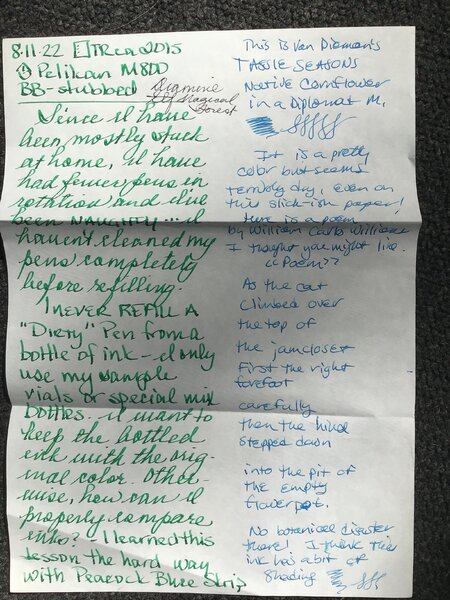 8-11-22 TR 2015
Pelikan M800
BB-stubbed Diamine
Magical
Forest
Since I have
been mostly stuck
at home, I have
had fewer pens in
rotation and I've
been NAUGHTY... I
haven't cleaned my
pens completely
before refilling.
I NEVER REFILL A
"Dirty" Pen from a
bottle of ink - I only
use my sample
vials or special mix
bottles. I want to
keep the bottled
ink with the orig-
inal color. Other-
wise, how can I
properly compare
inks? I learned this
lesson the hard way
with Peacock Blue Skrip
This is Van Dieman's
TASSIE SEASONS
Native Cornflower
in a Diplomat M.
It is a pretty
color but seems
terribly dry, even on
this slick-ish paper!
Here is a poem
by William Carlos Williams
I thought you might like.
"Poem"
As the cat
climbed over
the top of
the jamcloset
first the right
forefoot
carefully
then the hind
stepped down
into the pit of
the empty
flowerpot.
No botanical disaster
there! I think this
ink has a bit of
shading